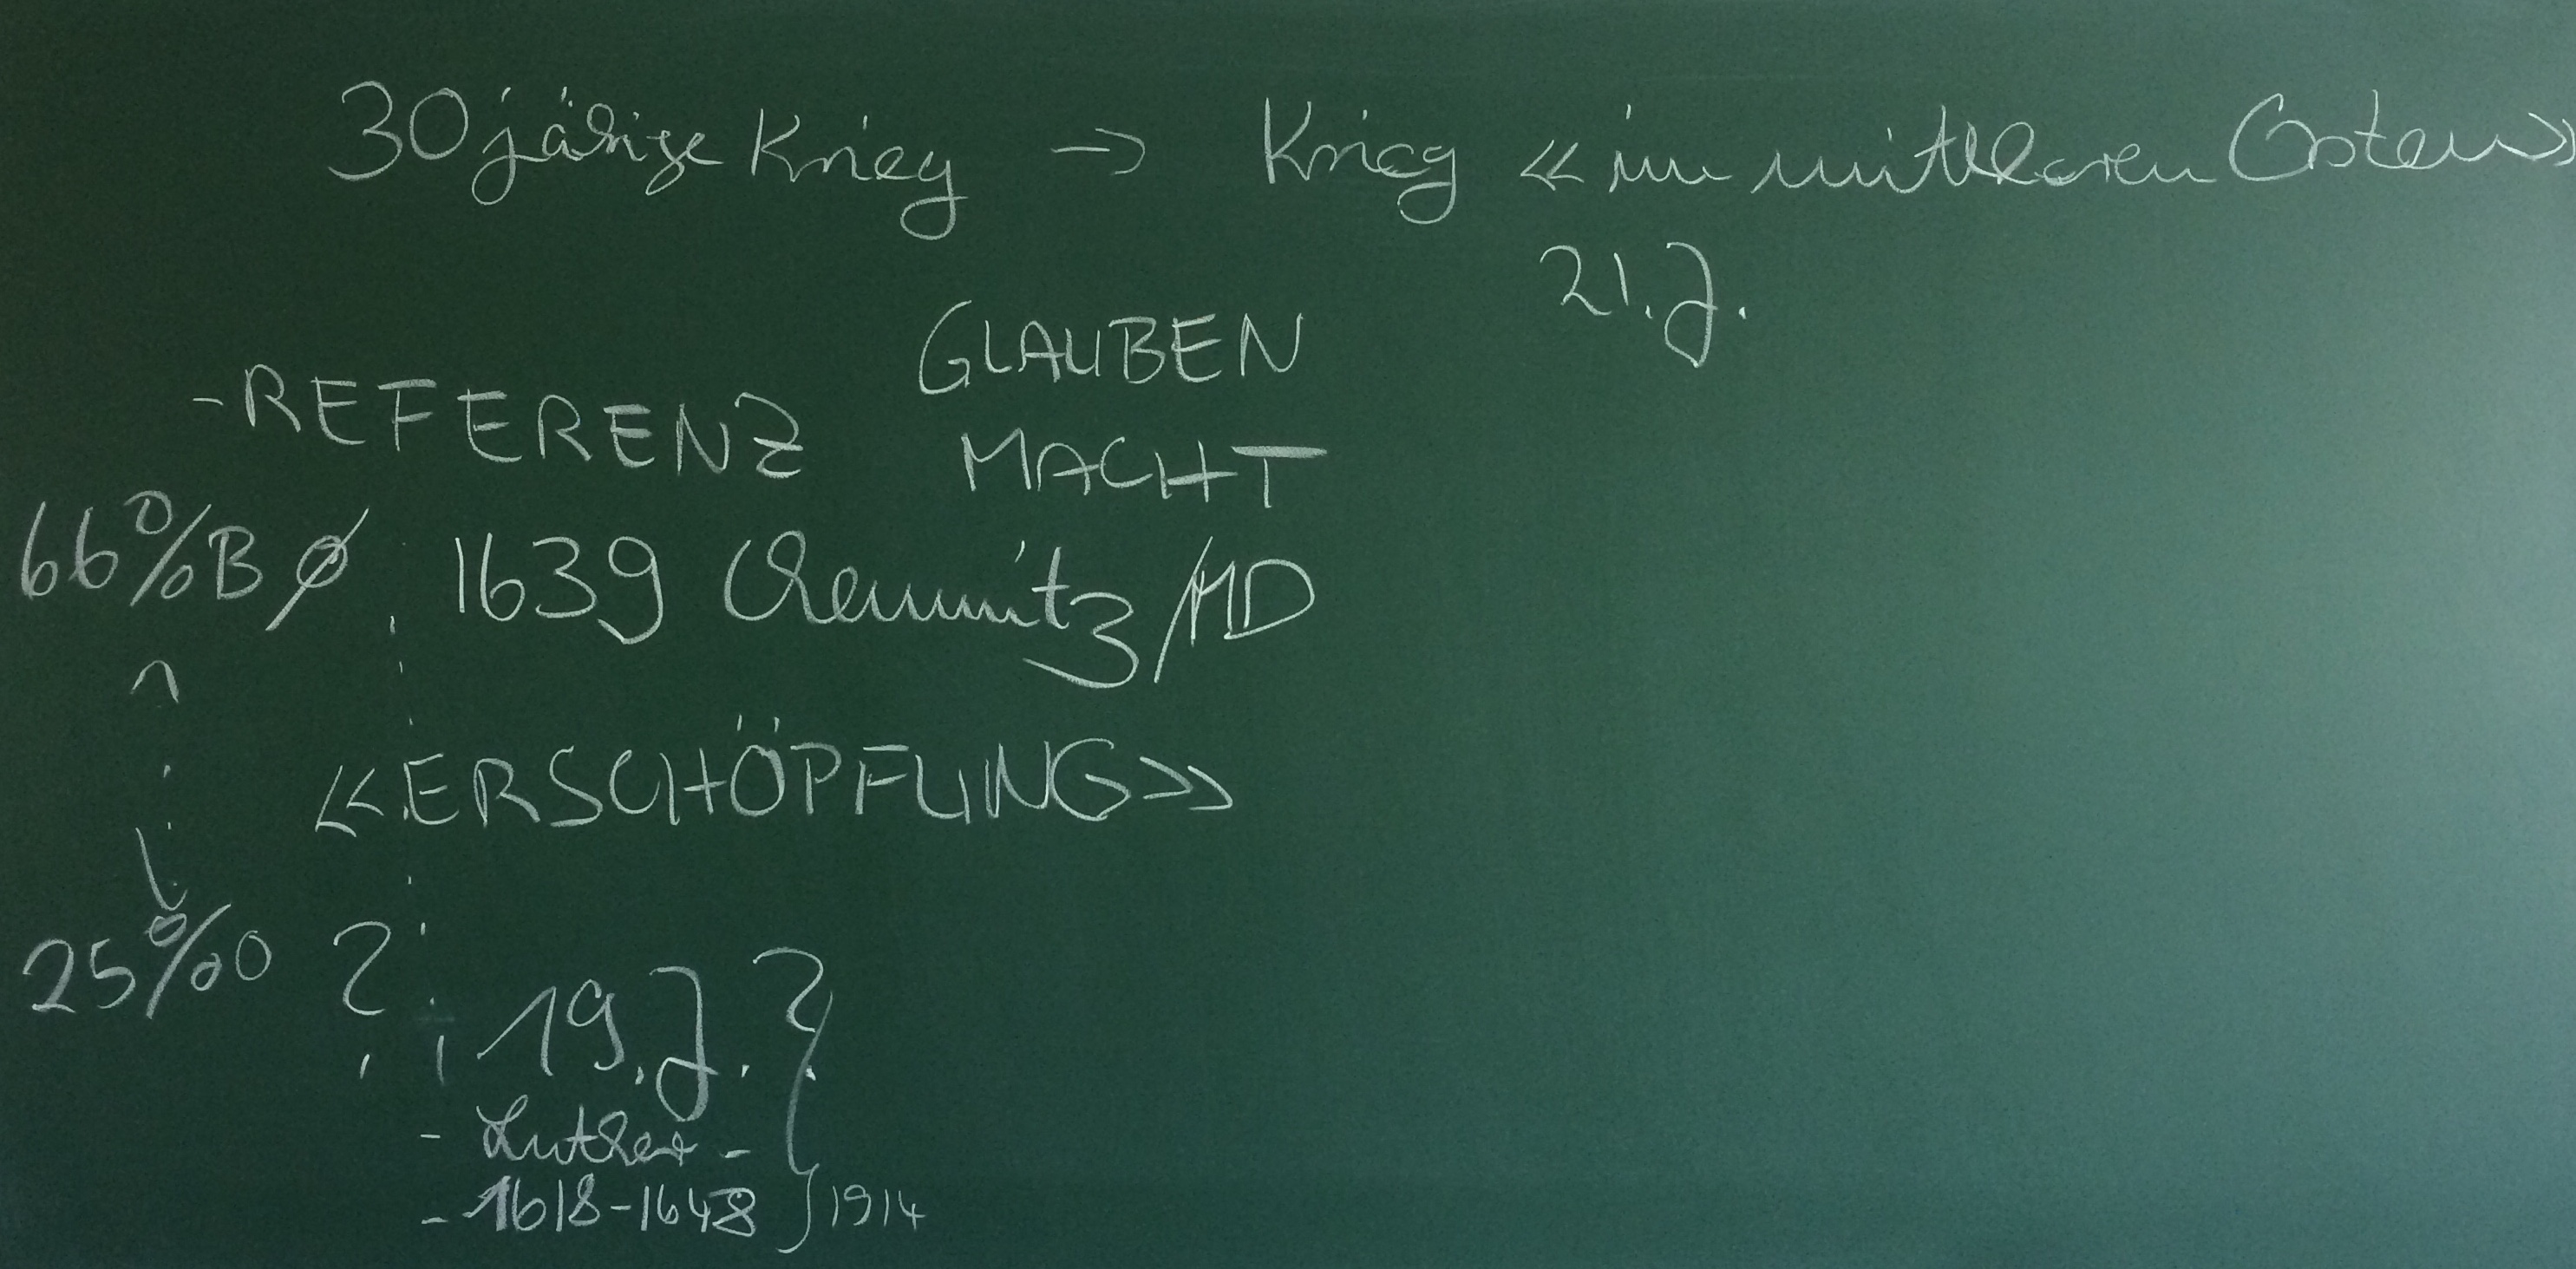 30jährige Krieg → Krieg «im mittleren Osten»
21. J.
GLAUBEN
- REFERENZ
MACHT
66% B Ø 1639 Chemnitz/MD
«ERSCHÖPFUNG»
25% 0 ?
19. J. ?
- Luther -
- 1618-1648 } 1914